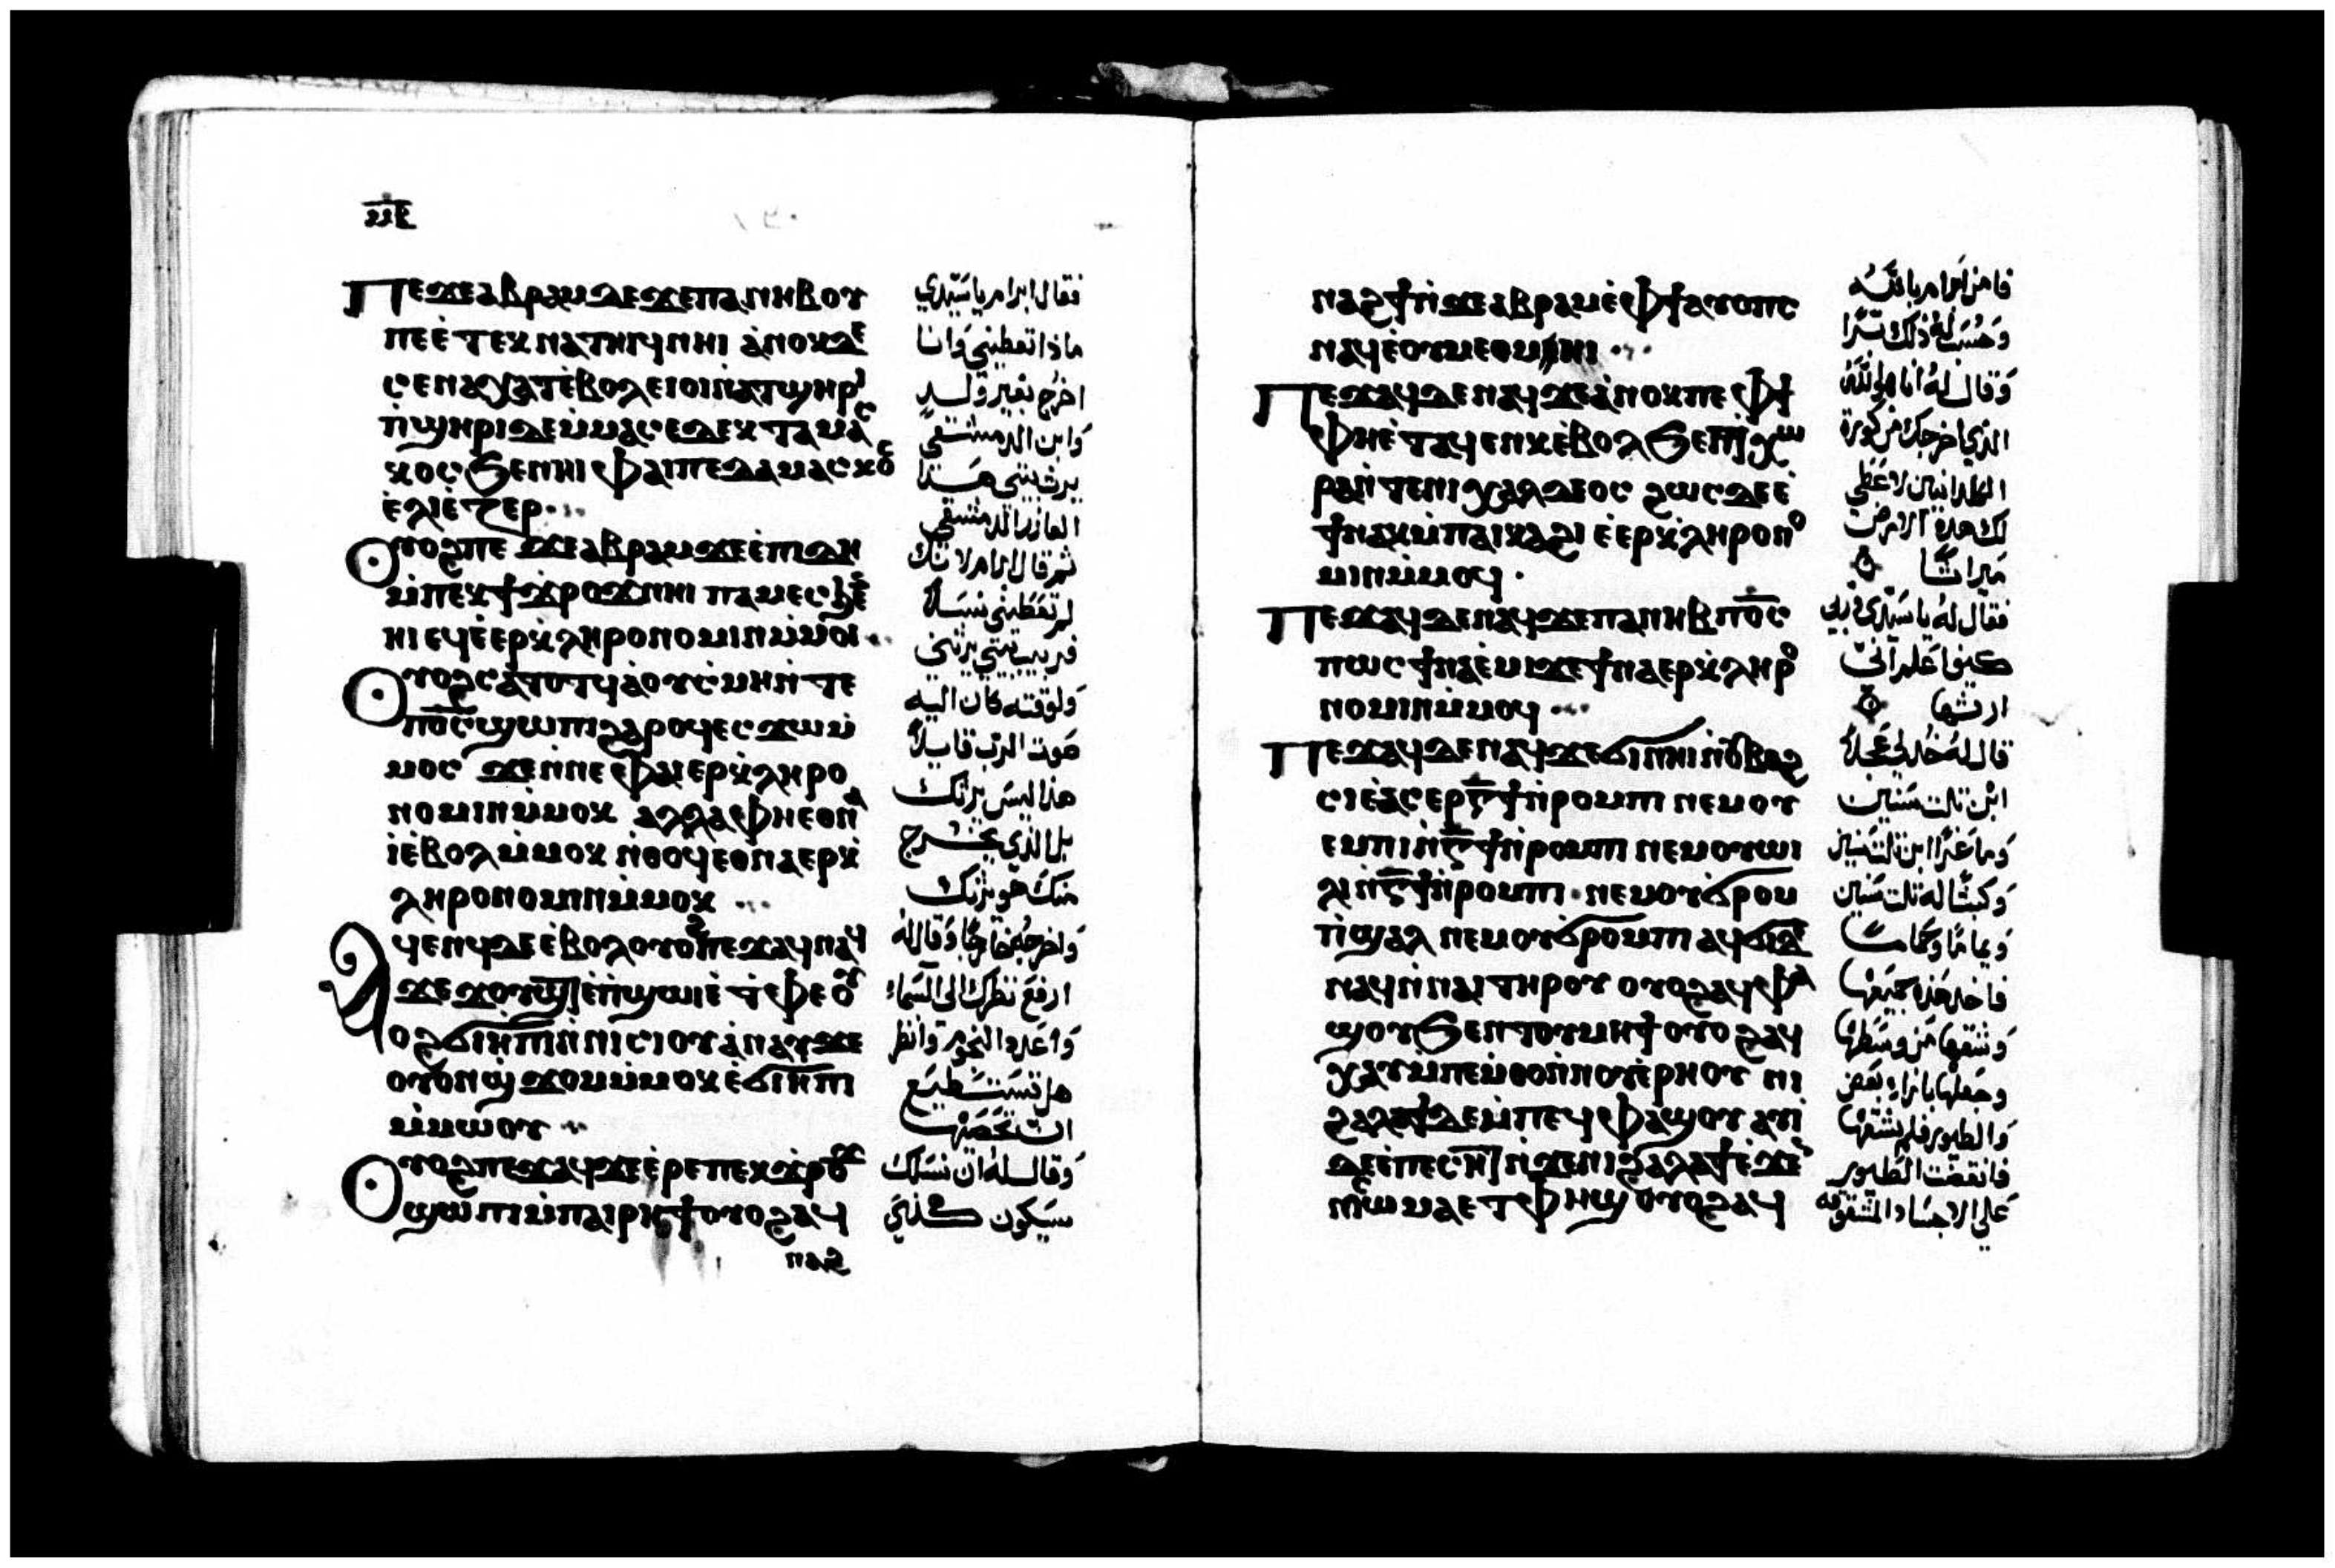 Ⲡⲉϫⲉⲁⲃⲣⲁⲙⲇⲉϫⲉⲡⲁⲛⲏⲃⲟⲩ
ⲡⲉⲉ̀ⲧⲉⲕⲛⲁⲧⲏⲓϥⲛⲏⲓ ⲁ̀ⲛⲟⲕⲇⲉ
ⲥⲉⲛⲁⲭⲁⲧⲉ̀ⲃⲟⲗⲉⲓⲟⲓⲛ̀ⲁⲧϣⲏⲣⲓ
ⲡ̀ϣⲏⲣⲓⲇⲉⲙ̀ⲙⲁⲥⲉⲇⲉⲕⲧⲁⲙⲁⲥ
ⲕⲟⲥϦⲉⲛⲡⲏⲓ ⲫⲁⲓⲡⲉⲇⲁⲙⲁⲥⲕⲟⲥ
ⲉ̀ⲗⲓⲉ̀ⲍⲉⲣ
Ⲟⲩⲟϩⲡⲉϫⲉⲁⲃⲣⲁⲙϫⲉⲉ̀ⲡⲓⲇⲏ
ⲙ̀ⲡⲉⲕϯϫ̀ⲣⲟϫⲛⲏⲓ ⲡⲁⲙⲉⲥϧⲉⲛ
ⲏⲓ ⲉϥⲉ̀ⲉⲣⲕ̀ⲗⲏⲣⲟⲛⲟⲙⲓⲛⲙ̀ⲙⲟⲓ
Ⲟⲩⲟϩⲥⲁⲧⲟⲧϥⲁ̀ⲟⲩⲥ̀ⲙⲏⲛ̀ⲧⲉ
ⲡ⳪ϣⲱⲡⲓϩⲁⲣⲟϥⲉⲥϫⲱⲙ̀
ⲙⲟⲥ ϫⲉⲛⲛⲉⲫⲁⲓⲉⲣⲕ̀ⲗⲏⲣⲟ
ⲛⲟⲙⲓⲛⲙ̀ⲙⲟⲕ ⲁⲗⲗⲁⲫⲏⲉⲑⲛⲁ
ⲓ̀ⲉ̀ⲃⲟⲗⲙ̀ⲙⲟⲕ ⲛ̀ⲑⲟϥⲉⲑⲛⲁⲉⲣⲕ̀
ⲗⲏⲣⲟⲛⲟⲙⲓⲛⲙ̀ⲙⲟⲕ
Ⲁϥⲉⲛϥⲇⲉⲉ̀ⲃⲟⲗⲟⲩⲟϩⲡⲉϫⲁϥⲛⲁϥ
ϫⲉϫⲟⲩϣⲧⲉ̀ⲡ̀ϣⲱⲓⲉ̀ⲧ̀ⲫⲉⲟⲩ
ⲟϩϭⲓⲏ̀ⲡⲓⲛ̀ⲛⲓⲥⲓⲟⲩ ⲁ̀ⲛⲁⲩϫⲉ
ⲟⲩⲟⲛϣ̀ϫⲟⲙⲙ̀ⲙⲟⲕⲉ̀ϭⲓⲏ̀ⲡⲓ
ⲙ̀ⲙⲱⲟⲩ
Ⲟⲩⲟϩⲡⲉϫⲁϥϫⲉⲉ̀ⲣⲉⲡⲉⲕϫ̀ⲣⲟϫ
ϣⲱⲡⲓⲙ̀ⲡⲁⲓⲣⲏϯⲟⲩⲟϩⲁϥ
ⲛⲁϩ
فقال ابرام ياسَيّدي
ماذا تعطيني وَانا
اخرُج بغير ولد
وَابن الدمشقى
يرث بيتي هَذا
العازر الدمشقي
ثم قال ابرام لانك
لم تعَطيني نسَلاً
فربيب بيتي يرثني
وَلوقته كان اليه
صَوت الربّ قايلاً
هَذا ليسَ يرثك
بل الذي يخرج
منك هو يرثك
وَاخرجَه خارجًا وَقال لهُ
ارفعَ نظرك الى السَماء
وَاعَدد النجوم وَانظر
هل تستَطيعَ
ان تحصَيها
وَقال لهُ ان نسَلك
سَيكون كَذي
ⲛⲁϩϯⲛ̀ϫⲉⲁⲃⲣⲁⲙⲉ̀ⲫϯⲁⲩⲟⲡⲥ
ⲛⲁϥⲉ̀ⲟⲩⲙⲉⲑⲙⲏⲓ
Ⲡⲉϫⲁϥⲇⲉⲛⲁϥϫⲉⲁ̀ⲛⲟⲕⲡⲉⲫϯ
ⲫⲏⲉ̀ⲧⲁϥⲉⲛⲕⲉ̀ⲃⲟⲗϦⲉⲛϯⲭⲱ
ⲣⲁⲛ̀ⲧⲉⲛⲓⲭⲁⲗⲇⲉⲟⲥ ϩⲱⲥⲇⲉⲉ̀
ϯⲛⲁⲕⲙ̀ⲡⲁⲓⲕⲁϩⲓ ⲉ̀ⲉⲣⲕ̀ⲗⲏⲣⲟⲛⲟ
ⲙⲓⲛⲙ̀ⲙⲟϥ
Ⲡⲉϫⲁϥⲇⲉⲛⲁϥϫⲉⲡⲁⲛⲏⲃⲡ⳪
ⲡⲱⲥϯⲛⲁⲉ̀ⲙⲓϫⲉϯⲛⲁⲉⲣⲕ̀ⲗⲏⲣⲟ
ⲛⲟⲙⲓⲛⲙ̀ⲙⲟϥ
Ⲡⲉϫⲁϥⲇⲉⲛⲁϥϫⲉϭⲓⲛⲏⲓⲛ̀ⲟⲩⲃⲁϩ
ⲥⲓⲉ̀ⲁⲥⲉⲣⲅ̅ϯⲛ̀ⲣⲟⲙⲡⲓ ⲛⲉⲙⲟⲩ
ⲉⲙⲡⲓⲛ̀ⲅ̅ϯⲛ̀ⲣⲟⲙⲡⲓ ⲛⲉⲙⲟⲩⲱⲓ
ⲗⲓⲛ̀ⲅ̅ϯⲛ̀ⲣⲟⲙⲡⲓ ⲛⲉⲙⲟⲩϭⲣⲟⲙ
ⲡ̀ϣⲁⲗ ⲛⲉⲙⲟⲩϭⲣⲟⲙⲡⲓ ⲁϥϭⲓⲇⲉ
ⲛⲁϥⲛ̀ⲛⲁⲓⲧⲏⲣⲟⲩ ⲟⲩⲟϩⲁϥⲫⲁ
ϣⲟⲩϦⲉⲛⲧⲟⲩⲙⲏϯ ⲟⲩⲟϩⲁϥ
ⲭⲁⲩⲙ̀ⲡⲉⲙ̀ⲑⲟⲛ̀ⲛⲟⲩⲉ̀ⲣⲏⲟⲩ ⲛⲓ
ϩⲁⲗⲁϯⲇⲉⲙ̀ⲡⲉϥⲫⲁϣⲟⲩ ⲁⲩⲓ̀
ⲇⲉⲉ̀ⲡⲉⲥⲏⲧⲛ̀ϫⲉⲛⲓϩⲁⲗⲁϯⲉ̀ϫⲉⲛ
ⲛⲓⲥⲱⲙⲁⲉⲧⲫⲏϣ ⲟⲩⲟϩⲁϥ
فامن ابرام بالله
وَحُسَبَ لهُ ذلك برًا
وَقال لهُ انا هوَ اللهُ
الذي اخرجك من كورة
الكلدانيين لاعَطي
لك هَذه الارض
مَيراثًا
فقال لهُ يا سَيّدي رَبي
كيف اعَلم انّي
ارثها
قال لهُ خُذ لي عَجلةً
ابْن ثلث سَنين
وَماعَزًا ابن ثلث سَنين
وَكبشًا له ثلث سَنين
وَيمامًا وَحمامًا
فاخذ هَذه جميَعَها
وَشقها مَن وسَطها
وَجَعَلها بازاء بعَض
وَالطيور فلم يشقها
فانقضّت الطيور
عَلى الاجسَاد المشقوقه